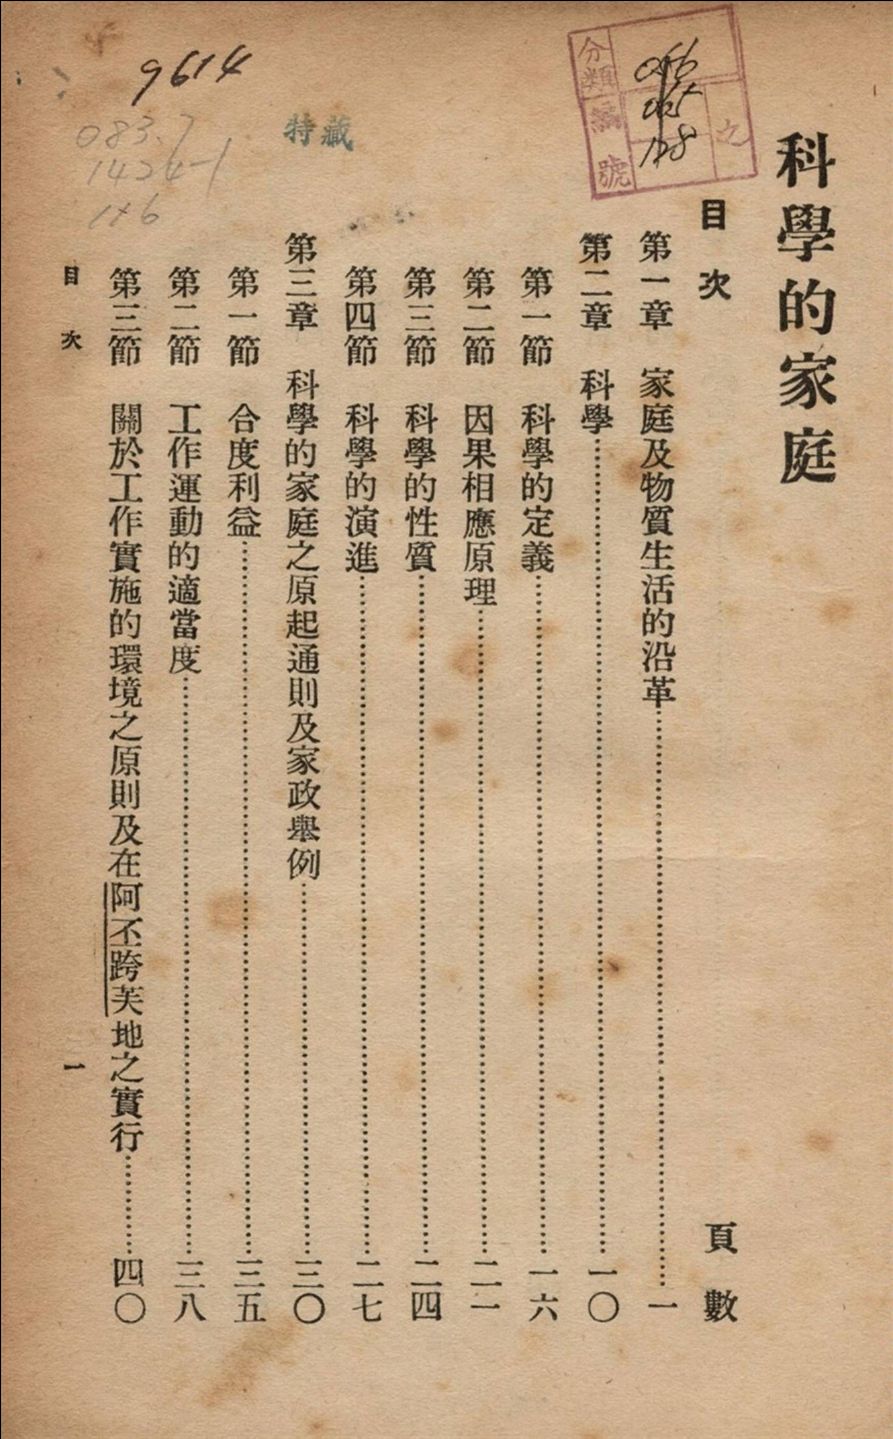 科學的家庭
目次
頁數
第一章 家庭及物質生活的沿革……一
第二章 科學……一〇
第一節 科學的定義……一六
第二節 因果相應原理……二一
第三節 科學的性質……二四
第四節 科學的演進……二七
第三章 科學的家庭之原起通則及家政舉例……三〇
第一節 合度利益……三五
第二節 工作運動的適當度……三八
第三節 關於工作實施的環境之原則及在阿丕跨芙地之實行……四〇
目次
一
分類編號
之
特藏
9614
083.7
1424-1
1×6